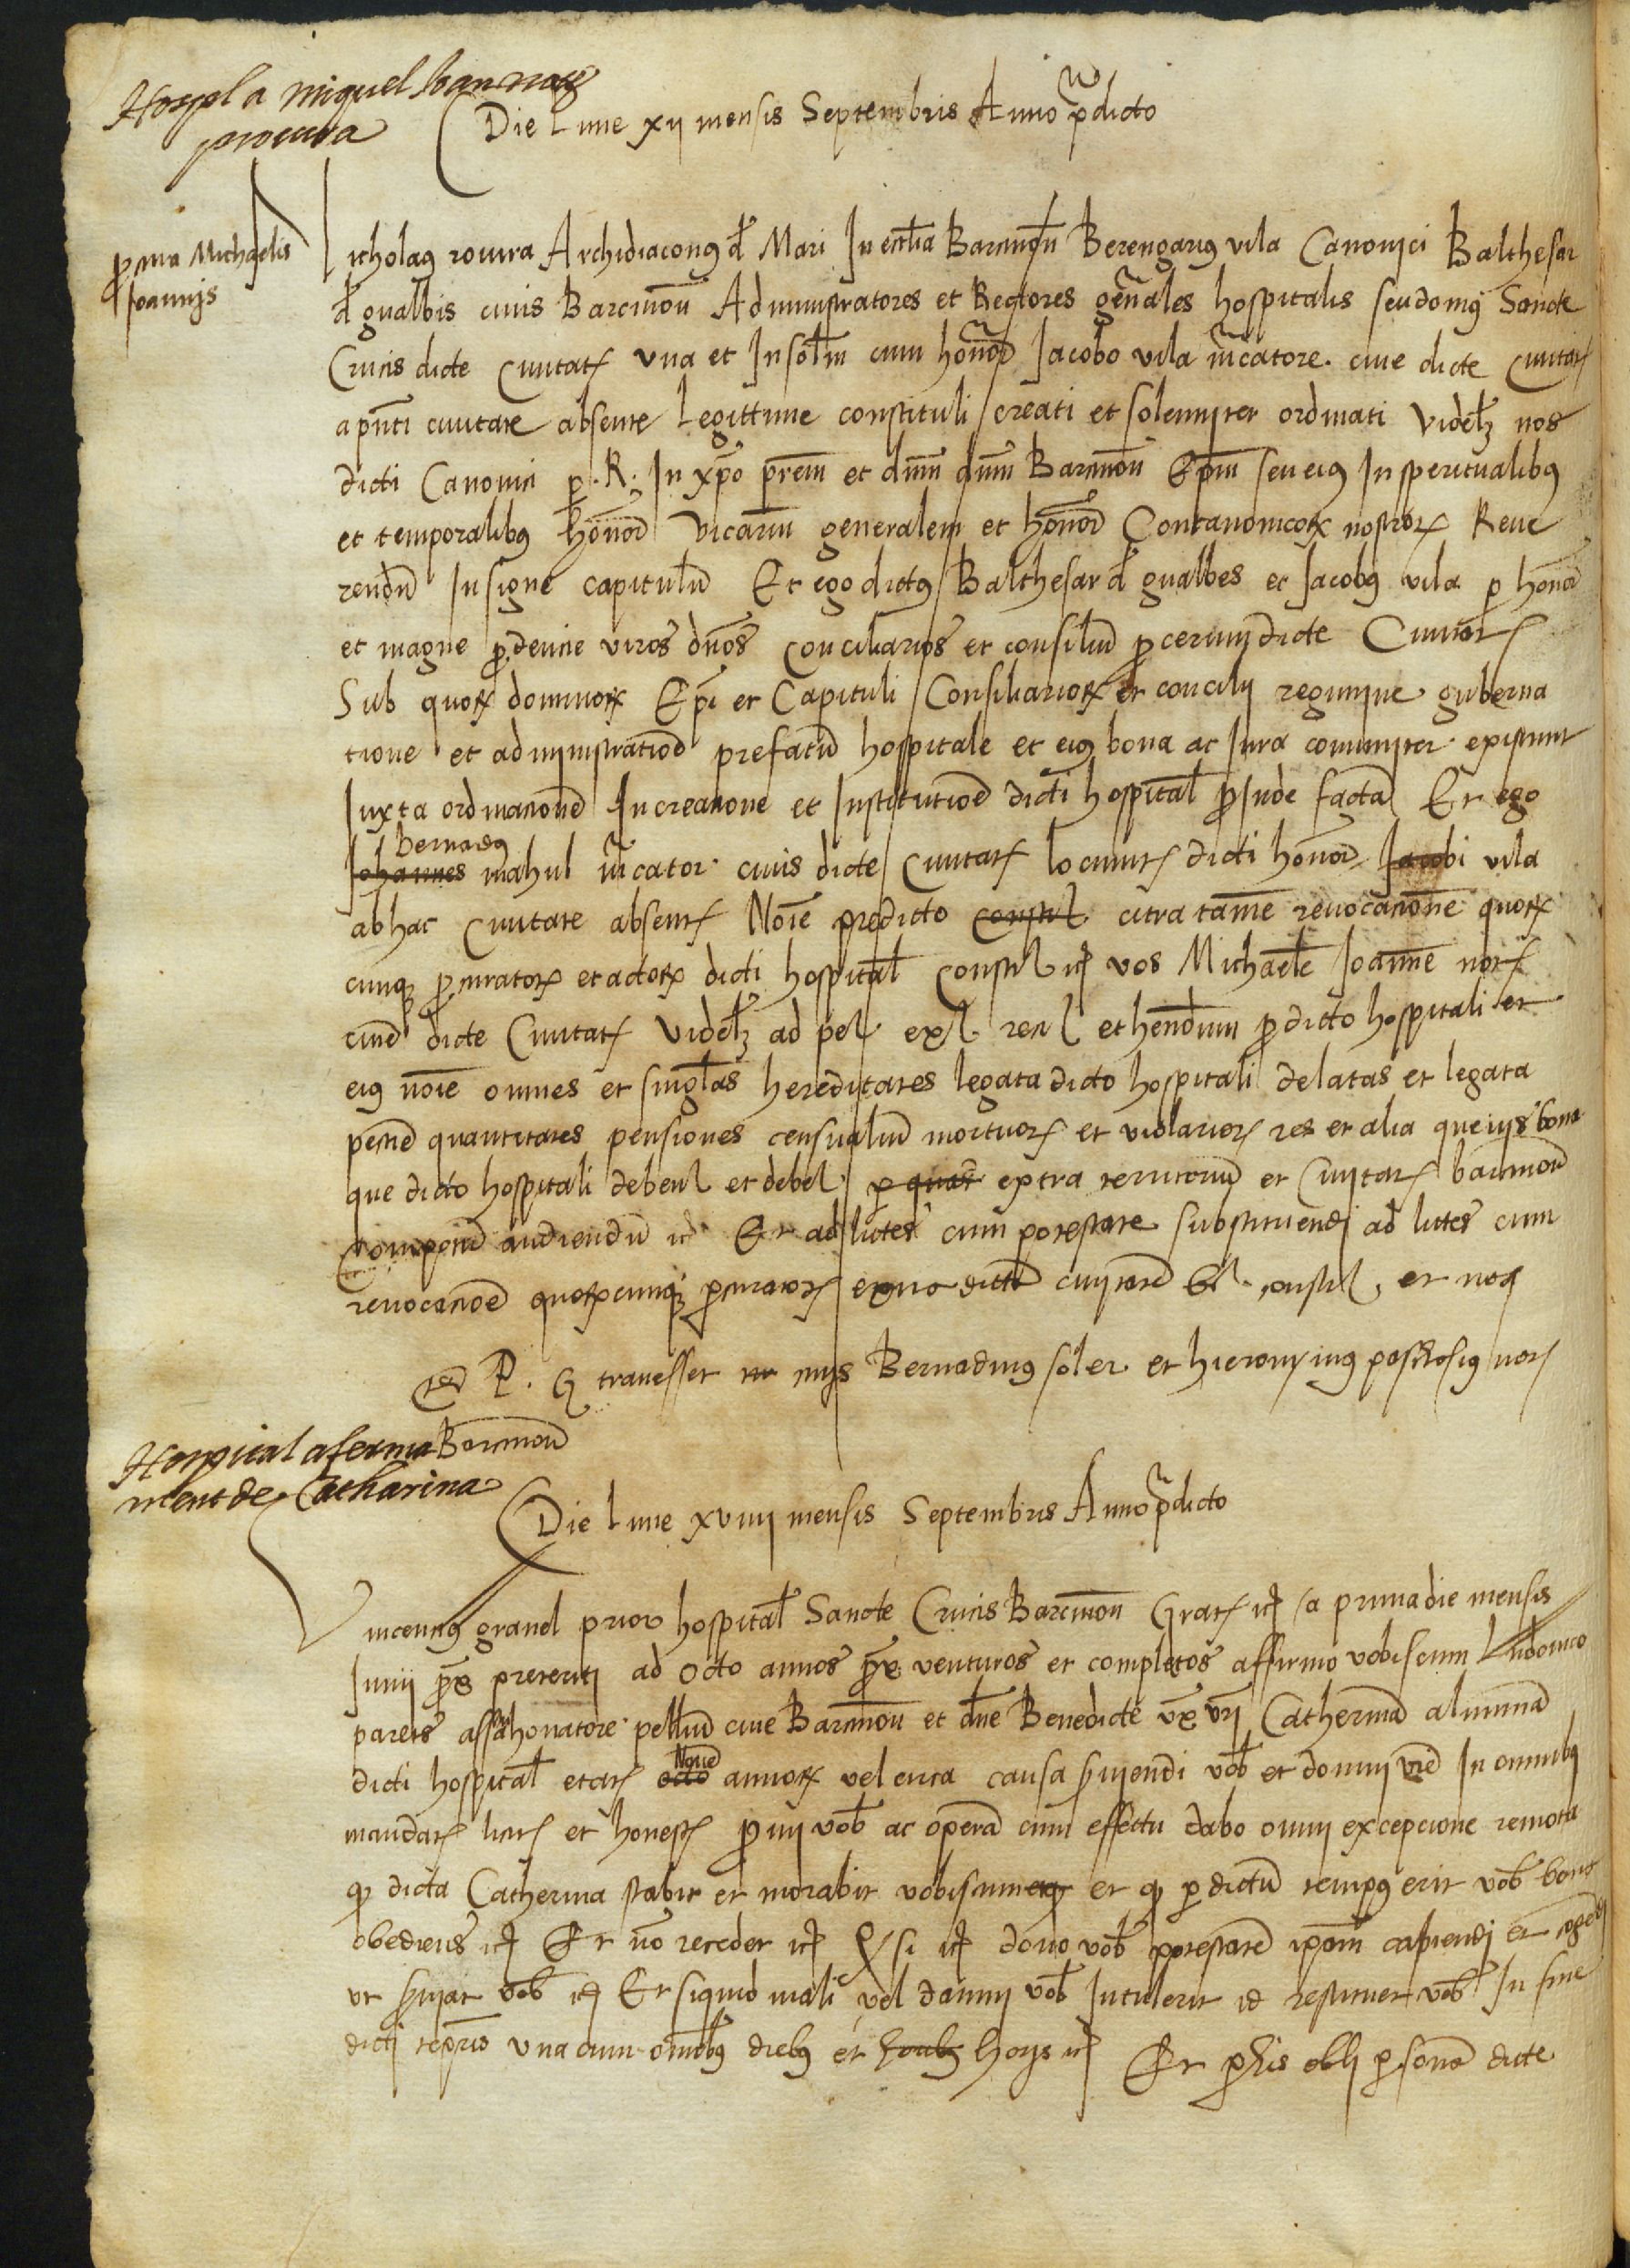 Hospl a miquel Joan
procura
Die Lune xij mensis Septembris Anno p̃dicto
p̱cura Michaelis
Joannis
Nicholaus rovira Archidiaconus d̃ Mari In ecc̃lia Barcinoñ Berengarius vila Canonici Balthesar
d̃ gualbis civis Barcinoñ Administratores et Rectores gen̄ales hospitalis seu domus Sancte
Crucis dicte Civitat̃ una et In solid̃ cum honor̃ Jacobo vila m̃catore cive dicte Civitat̃
a pñti civitate absente Legittime constituti creati et solemniter ordinati Videlz nos
dicti Canonici p̱ R. In xp̄o prem̃ et dn̄m dn̄m Barcinoñ Ep̄m seu eius In speritualibus
et temporalibus honor̃ Vicariu᷉ generalem et honor̃ Concanonicorꝝ nostror̃ Reve
rendu᷉ Insigne capitulu᷉ Et ego dictus Balthesar d̃ gualbes et Jacobus vila p̱ honor̃
et magne p̱dencie viros dn̄os conciliarios et consiliu᷉ p̱cerum dicte Civitat̃
Sub quorꝝ dominorꝝ Ep̄i et Capituli Consiliariorꝝ et concilij regimine guberna
tione et administratioe᷉ prefatu᷉ hospitale et eius bona ac Jura comuniter existunt
Juxta ordinacione᷉ In creacione et Institutioe᷉ dicti hospital̃ p̱ Inde facta᷉ Et ego
bernadus
Johannes mahul m̃cator civis dicte Civitat̃ locumt̃ dicti honor̃ Jacobi vila
ab hac Civitate absent̃ Noīe predicto constil citra tame᷉ revocacione᷉ quorꝝ
cunqꝫ p̱curatorꝝ et actorꝝ dicti hospital̃ constil ic̃ vos Michaele᷉ Joanne᷉ not̃
cive᷉ dicte Civitat̃ Videlz ad petl exl recl et hend̃um p̱ dicto hospitali et
eius noīe omnes et singlas hereditates legata dicto hospitali delatas et legata
pecue᷉ quantitates pensiones censualiu᷉ mortuor̃ et violarior̃ res et alia que iis bona
que dicto hospitali debenl et debel p̱ quas extra territoriu᷉ et Civitat̃ barcinoñ
Compotu᷉ audiendu᷉ ic̃ Et ad littes cum potestate substituendi ad littes cum
revocacioe᷉ quorꝝcunqꝫ p̱curator̃ extra dicta᷉ civitate᷉ constil et nos
P. G travesset nr̃ mys Bernadinus soler et hieronymus not̃
Barcinoñ
Hospital aferma
ment de Catharina
Die Lune xviiij mensis Septembris Anno p̃dicto
Vincencius granel prior hospital̃ Sancte Crucis Barcinoñ Grat̃ ic̃ a prima die mensis
Junij p̃x preteriti ad octo annos p̃x venturos et completos affirmo vobiscum Ludovico
parets assahonatore pelliu᷉ cive Barcinoñ et dn̄e Benedicte ux̃ vr̃i Catherina᷉ alumna᷉
Nove᷉
dicti hospital̃ etat̃ octo annorꝝ vel circa causa s̱viendi vob̃ et domui vr̃e In omnibus
mandat̃ licit̃ et honest̃ p̱mi vob̃ ac opera᷉ cum effectu dabo omni excepcione remota
qꝫ dicta Catherina stabit et morabit vobiscum et qꝫ p̱ dictu᷉ tempus erit vob̃ bona
obediens ic̃ Et no᷉ recedet ic̃ Qꝫ si ic̃ dono vob̃ potestate᷉ ip̄am capiendi et cogendi
ut s̱viat vob̃ ic̃ Et si quid mali vel damni vob̃ Intulerit id restituet vob̃ In fine
dicti tepris una cum om̄ibus diebus et horis ic̃ Et p̱ his obli p̱sona᷉ dicte